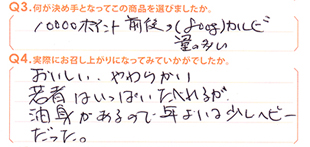 Q3.何が決め手となってこの商品を選びましたか。
10000ポイント前後で(800g)カルビ
量の多い
Q4.実際にお召し上がりになってみていかがでしたか。
おいしい、やわらかい
若者はいっぱいたべれるが、
油身があるので年よりは少しヘビー
だった。